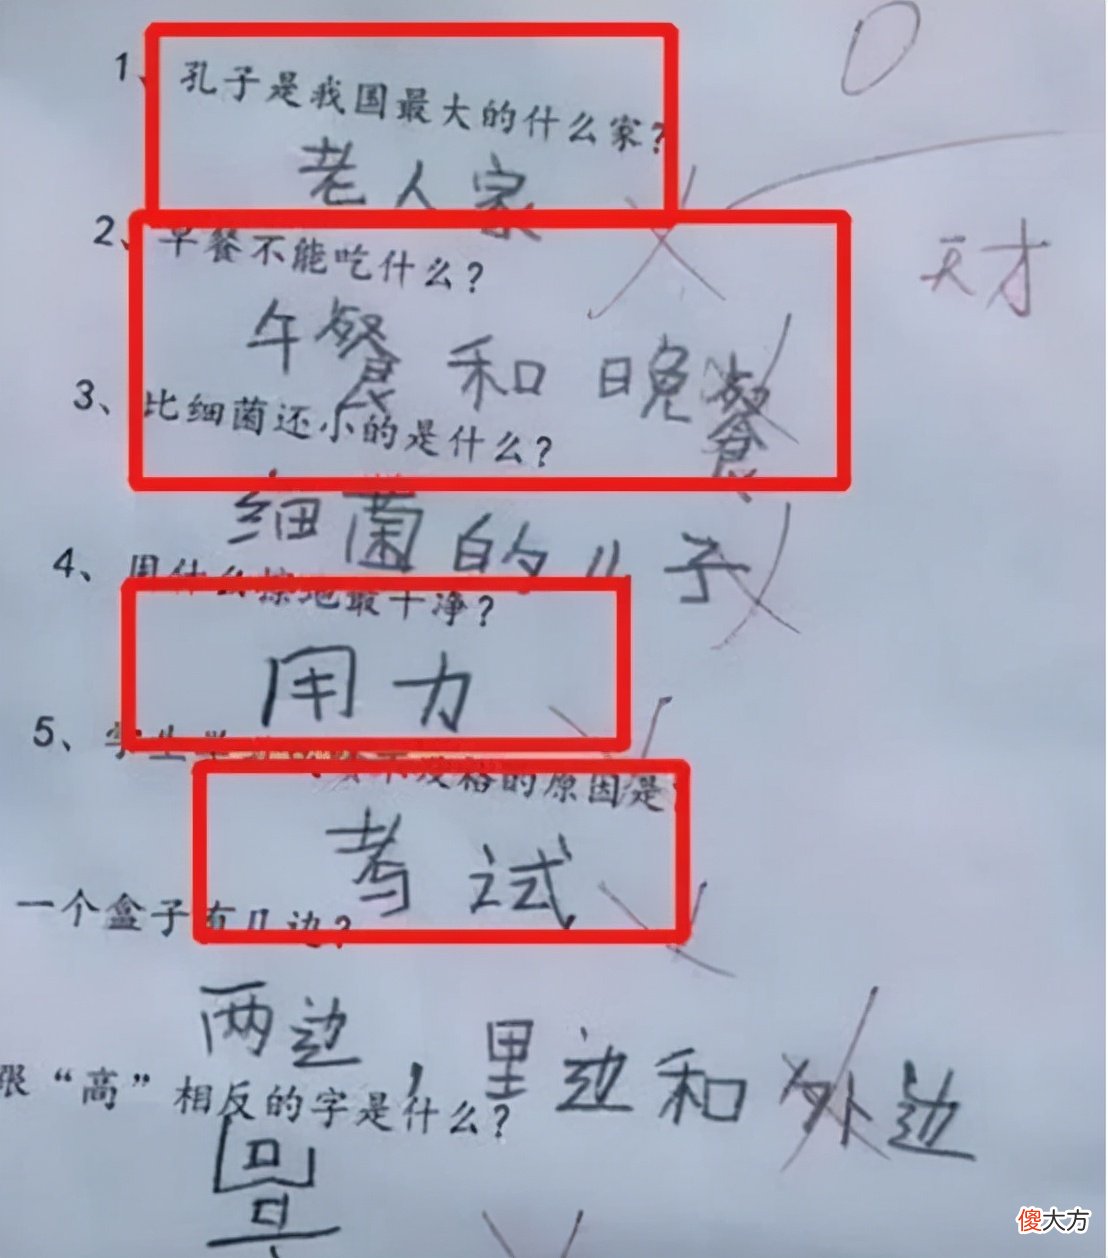 1、孔子是我国最大的什么家?
老人家
天才
2、早餐不能吃什么?
午餐和晚餐
3、比细菌还小的是什么?
细菌的儿子
4、用什么擦地最干净?
用力
5、学生
的原因是
考试
一个盒子有几边?
两边,里边和外边
跟“高”相反的字是什么?
傻大方